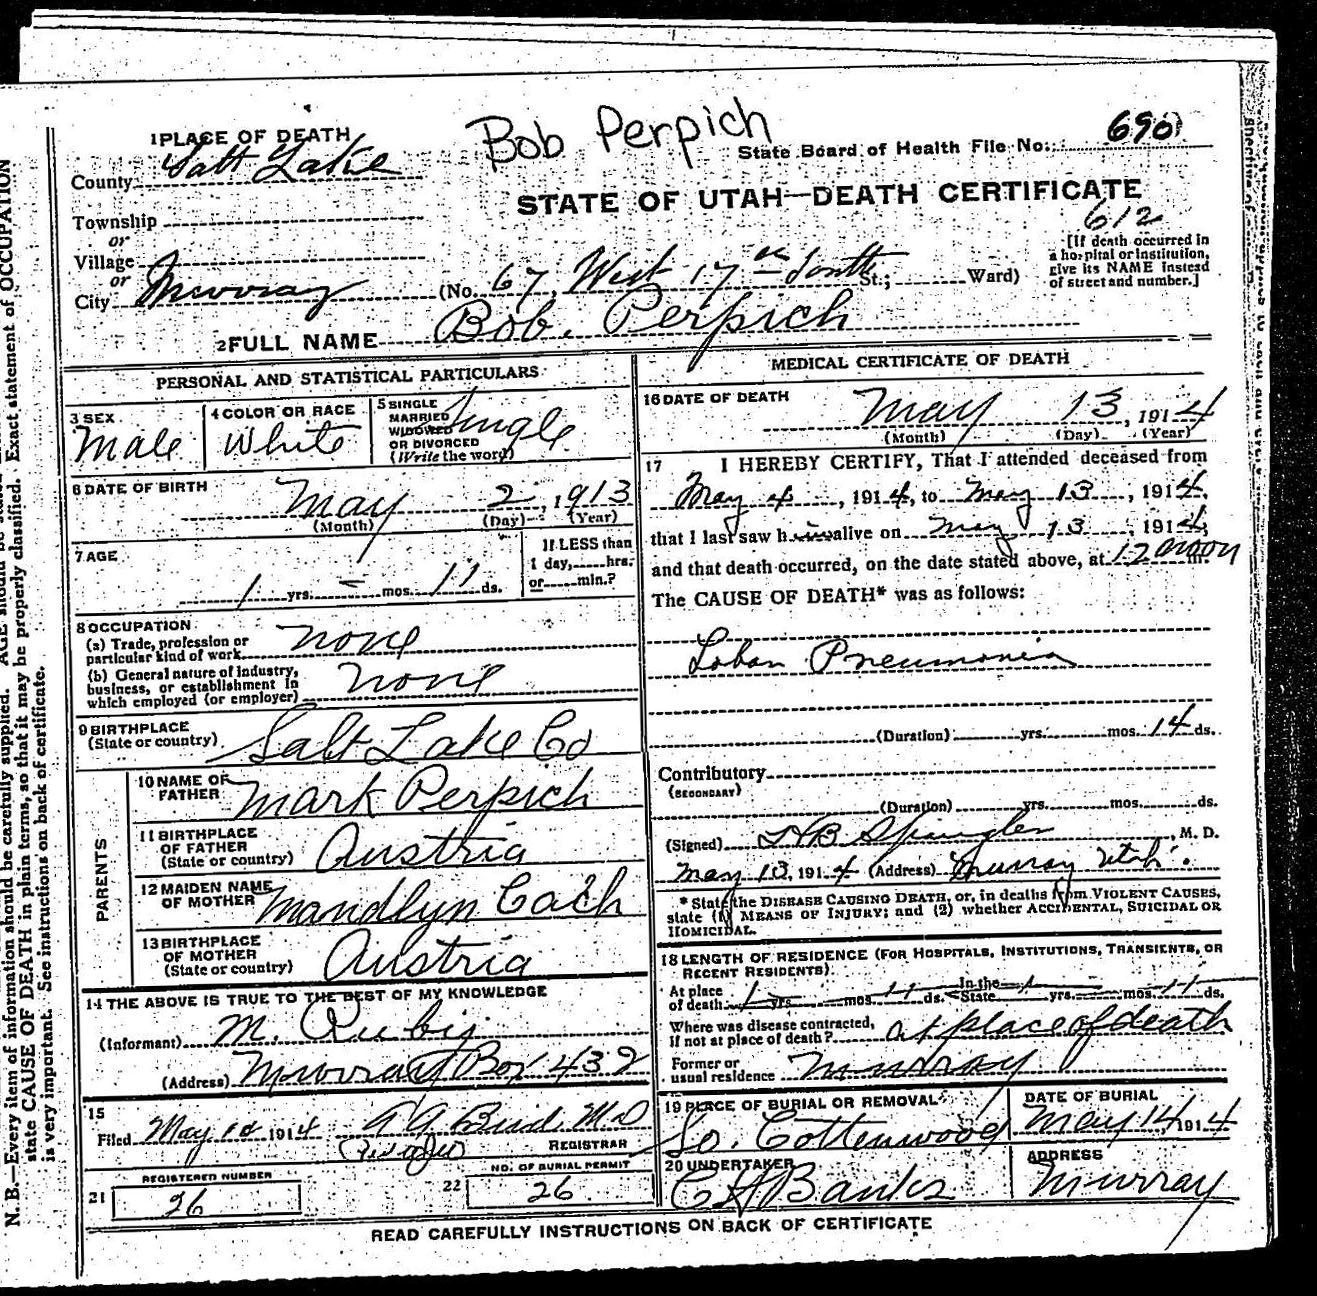 Bob Perpich
1 PLACE OF DEATH
County Salt Lake
State Board of Health File No. 690
STATE OF UTAH—DEATH CERTIFICATE
612
Township
or
Village
or
City Murray (No. 67, West 17th South St.; Ward)
[If death occurred in
a hospital or institution,
give its NAME instead
of street and number.]
2 FULL NAME Bob. Perpich
PERSONAL AND STATISTICAL PARTICULARS
3 SEX
Male
4 COLOR OR RACE
White
5 SINGLE
MARRIED
WIDOWED
OR DIVORCED
(Write the word)
Single
6 DATE OF BIRTH
May 2, 1913
(Month) (Day) (Year)
7 AGE
1 yrs. – mos. 11 ds.
If LESS than
1 day, hrs.
or min.?
8 OCCUPATION
(a) Trade, profession or
particular kind of work none
(b) General nature of industry,
business, or establishment in
which employed (or employer) none
9 BIRTHPLACE
(State or country) Salt Lake Co
PARENTS
10 NAME OF
FATHER Mark Perpich
11 BIRTHPLACE
OF FATHER
(State or country) Austria
12 MAIDEN NAME
OF MOTHER Mandlyn Cach
13 BIRTHPLACE
OF MOTHER
(State or country) Austria
14 THE ABOVE IS TRUE TO THE BEST OF MY KNOWLEDGE
(Informant) M. Rubij
(Address) Murray Box 432
15
Filed May 1914
REGISTRAR
REGISTERED NUMBER
21 26
NO. OF BURIAL PERMIT
22 26
MEDICAL CERTIFICATE OF DEATH
16 DATE OF DEATH
May 13, 1914
(Month) (Day) (Year)
17 I HEREBY CERTIFY, That I attended deceased from
May 4, 1914, to May 13, 1914,
that I last saw him alive on May 13, 1914,
and that death occurred, on the date stated above, at 12 noon m.
The CAUSE OF DEATH* was as follows:
Lobar Pneumonia
(Duration) yrs. mos. 14 ds.
Contributory
(SECONDARY)
(Duration) yrs. mos. ds.
(Signed) Spangler, M. D.
May 13, 1914 (Address) Murray Utah.
* State the DISEASE CAUSING DEATH, or, in deaths from VIOLENT CAUSES,
state (1) MEANS OF INJURY; and (2) whether ACCIDENTAL, SUICIDAL OR
HOMICIDAL.
18 LENGTH OF RESIDENCE (FOR HOSPITALS, INSTITUTIONS, TRANSIENTS, OR
RECENT RESIDENTS)
At place
of death 1 yrs. mos. 11 ds. In the State 1 yrs. mos. 11 ds.
Where was disease contracted,
if not at place of death? at place of death
Former or
usual residence Murray
19 PLACE OF BURIAL OR REMOVAL
So. Cottenwood
DATE OF BURIAL
May 14 1914
20 UNDERTAKER
Banks
ADDRESS
Murray
READ CAREFULLY INSTRUCTIONS ON BACK OF CERTIFICATE
N. B.—Every item of information should be carefully supplied. AGE should be stated
state CAUSE OF DEATH in plain terms, so that it may be properly classified. Exact statement of OCCUPATION
is very important. See instructions on back of certificate.